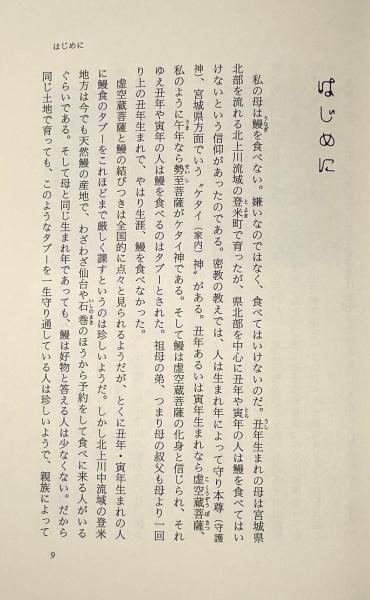 はじめに
はじめに
私の母は鰻を食べない。嫌いなのではなく、食べてはいけないのだ。丑年生まれの母は宮城県
北部を流れる北上川流域の登米町で育ったが、県北部を中心に丑年や寅年の人は鰻を食べてはい
けないという信仰があったのである。密教の教えでは、人は生まれ年によって守り本尊（守護
神）、宮城県方面でいう〝ケタイ（家内）神〟がある。丑年あるいは寅年生まれなら虚空蔵菩薩、
私のように午年なら勢至菩薩がケタイ神である。そして鰻は虚空蔵菩薩の化身と信じられ、それ
ゆえ丑年や寅年の人は鰻を食べるのはタブーとされた。祖母の弟、つまり母の叔父も母より一回
り上の丑年生まれで、やはり生涯、鰻を食べなかった。
虚空蔵菩薩と鰻の結びつきは全国的に点々と見られるようだが、とくに丑年・寅年生まれの人
に鰻食のタブーをこれほどまで厳しく課すというのは珍しいようだ。しかし北上川中流域の登米
地方は今でも天然鰻の産地で、わざわざ仙台や石巻のほうから予約をして食べに来る人がいる
ぐらいである。そして母と同じ生まれ年であっても、鰻は好物と答える人は少なくない。だから
同じ土地で育っても、このようなタブーを一生守り通している人は珍しいようで、親族によって
9